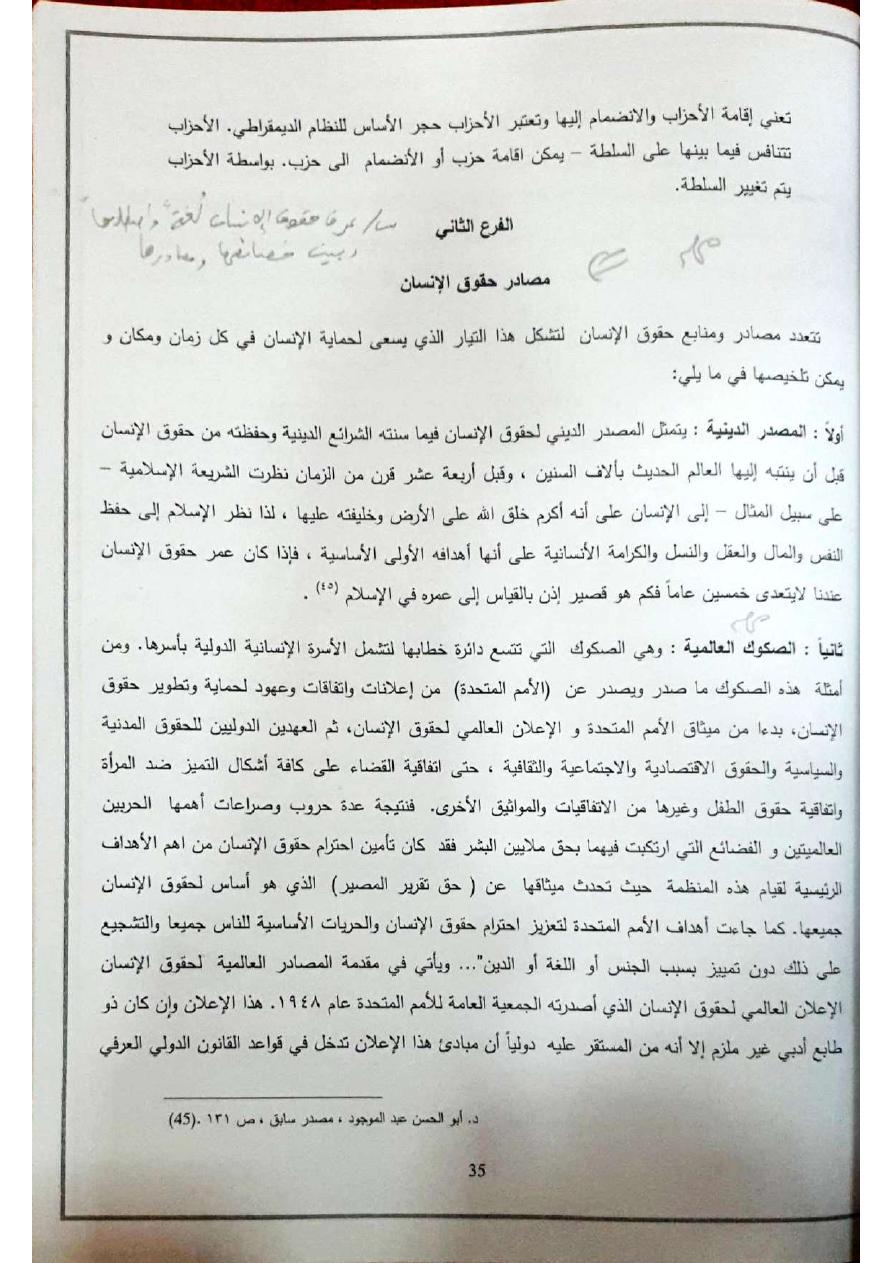 تعني إقامة الأحزاب والانضمام إليها وتعتبر الأحزاب حجر الأساس للنظام الديمقراطي. الأحزاب
تتنافس فيما بينها على السلطة – يمكن اقامة حزب أو الأنضمام الى حزب. بواسطة الأحزاب
يتم تغيير السلطة.
الفرع الثاني
س/ عرف حقوق الإنسان لغةً واصطلاحاً
وبين خصائصها ومصادرها
مهم
مصادر حقوق الإنسان
تتعدد مصادر ومنابع حقوق الإنسان لتشكل هذا التيار الذي يسعى لحماية الإنسان في كل زمان ومكان و
يمكن تلخيصها في ما يلي:
أولاً : المصدر الدينية : يتمثل المصدر الديني لحقوق الإنسان فيما سنته الشرائع الدينية وحفظته من حقوق الإنسان
قبل أن ينتبه إليها العالم الحديث بألاف السنين ، وقبل أربعة عشر قرن من الزمان نظرت الشريعة الإسلامية –
على سبيل المثال – إلى الإنسان على أنه أكرم خلق الله على الأرض وخليفته عليها ، لذا نظر الإسلام إلى حفظ
النفس والمال والعقل والنسل والكرامة الأنسانية على أنها أهدافه الأولى الأساسية ، فإذا كان عمر حقوق الإنسان
عندنا لايتعدى خمسين عاماً فكم هو قصير إذن بالقياس إلى عمره في الإسلام (٤٥) .
مهم
ثانياً : الصكوك العالمية : وهي الصكوك التي تتسع دائرة خطابها لتشمل الأسرة الإنسانية الدولية بأسرها. ومن
أمثلة هذه الصكوك ما صدر ويصدر عن (الأمم المتحدة) من إعلانات واتفاقات وعهود لحماية وتطوير حقوق
الإنسان، بدءا من ميثاق الأمم المتحدة و الإعلان العالمي لحقوق الإنسان، ثم العهدين الدوليين للحقوق المدنية
والسياسية والحقوق الاقتصادية والاجتماعية والثقافية ، حتى اتفاقية القضاء على كافة أشكال التميز ضد المرأة
واتفاقية حقوق الطفل وغيرها من الاتفاقيات والمواثيق الأخرى. فنتيجة عدة حروب وصراعات أهمها الحربين
العالميتين و الفضائع التي ارتكبت فيهما بحق ملايين البشر فقد كان تأمين احترام حقوق الإنسان من اهم الأهداف
الرئيسية لقيام هذه المنظمة حيث تحدث ميثاقها عن ( حق تقرير المصير) الذي هو أساس لحقوق الإنسان
جميعها. كما جاءت أهداف الأمم المتحدة لتعزيز احترام حقوق الإنسان والحريات الأساسية للناس جميعا والتشجيع
على ذلك دون تمييز بسبب الجنس أو اللغة أو الدين"... ويأتي في مقدمة المصادر العالمية لحقوق الإنسان
الإعلان العالمي لحقوق الإنسان الذي أصدرته الجمعية العامة للأمم المتحدة عام ١٩٤٨. هذا الإعلان وإن كان ذو
طابع أدبي غير ملزم إلا أنه من المستقر عليه دولياً أن مبادئ هذا الإعلان تدخل في قواعد القانون الدولي العرفي
د. أبو الحسن عبد الموجود ، مصدر سابق ، ص ١٣١ .(45)
35